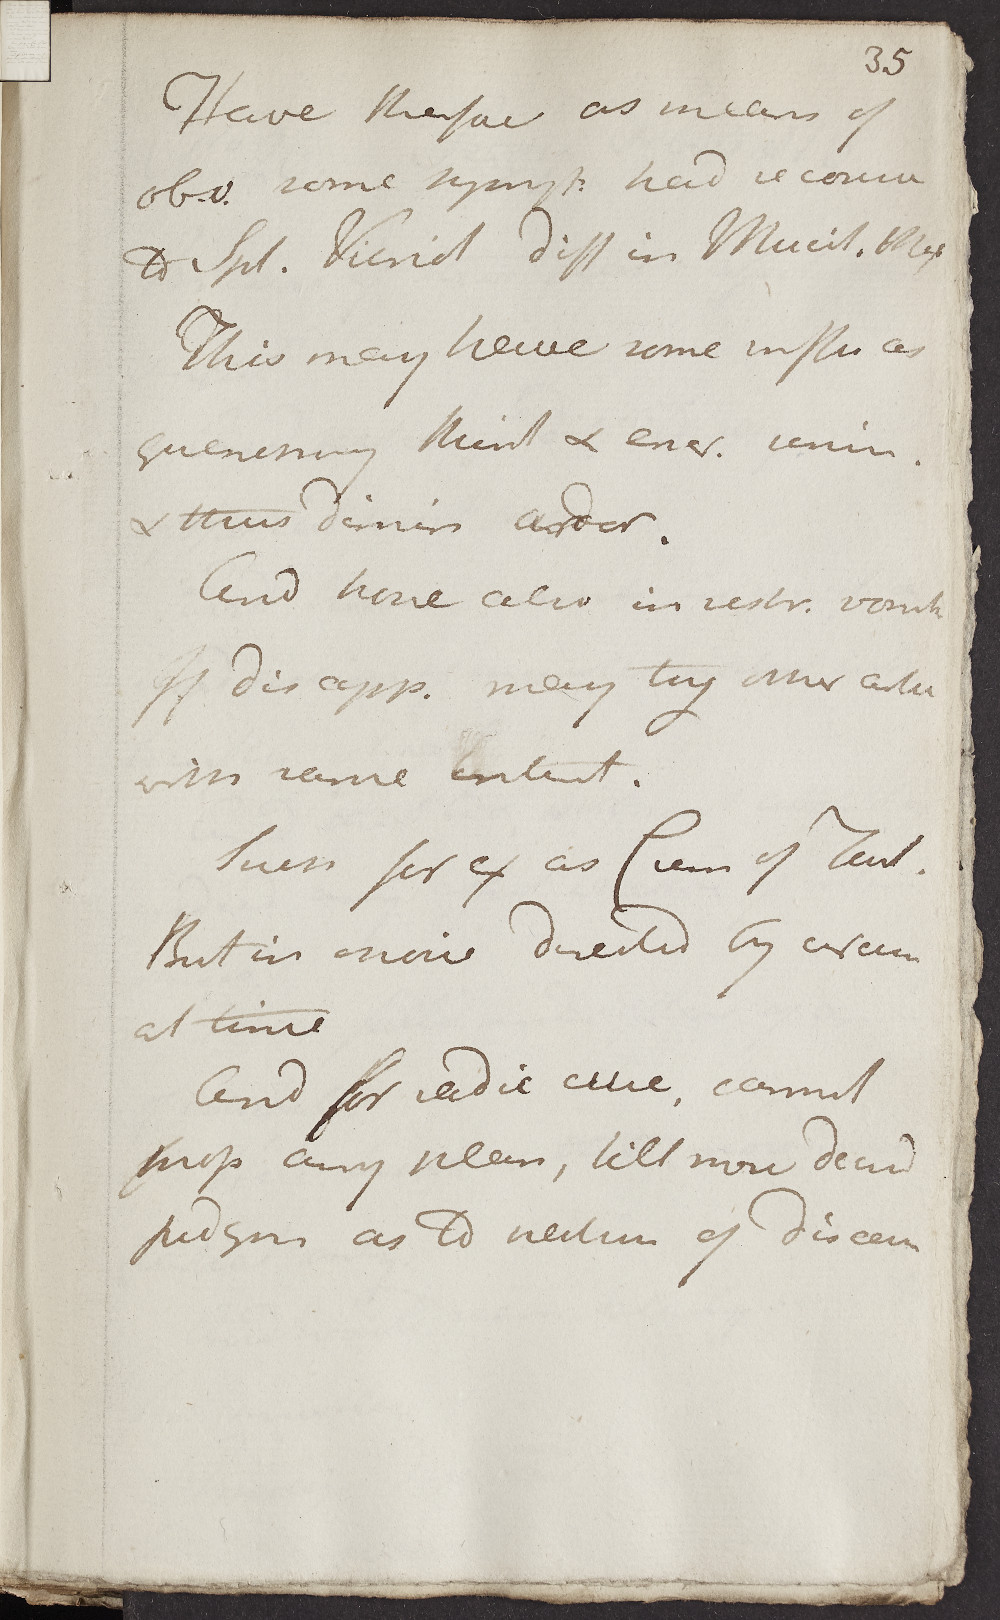 35
Have therfore as means of
obv. some sympt. had recour
to Spt. Vitriol diff in Mucil.
This may have some influ as
quenening thirst & ener.
& thus dimin ardor.
And hope also in restr. vomit
If disapp. may try other
with same intent.
Such for ex as Crem of Tart.
But in more directed by circum
at time
And for radic cure, cannot
prop any plan, till more decid
judgm as to nature of diseas